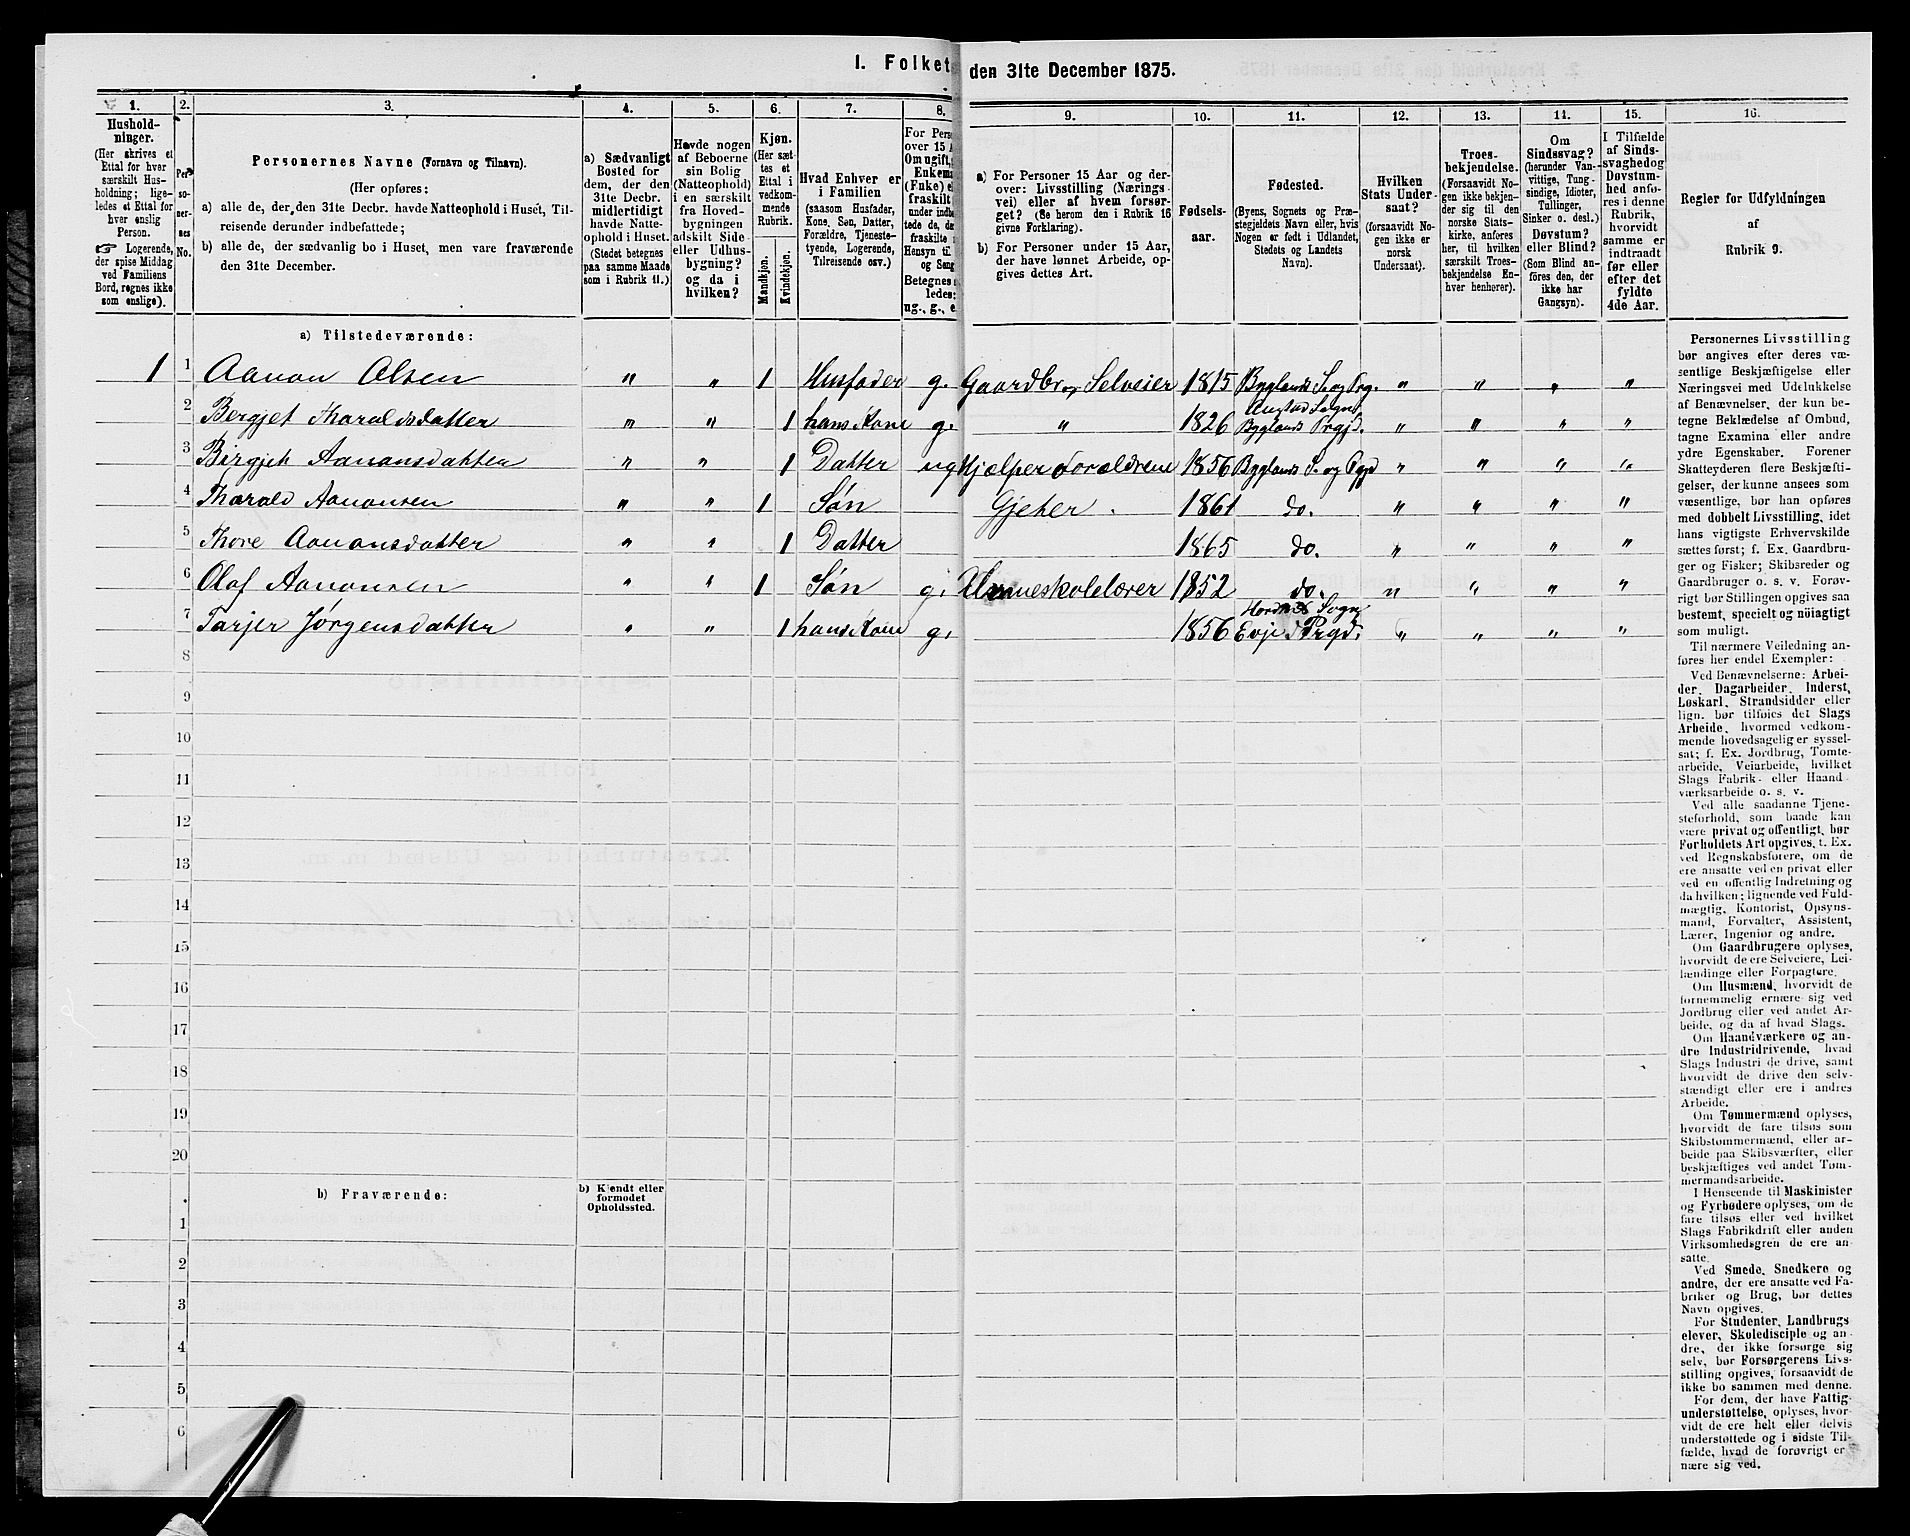 1. Folket den 31te December 1875.
1. 2. 3. 4. 5. 6. 7. 8. 9. 10. 11. 12. 13. 14. 15. 16.
Hushold-
ninger.
(Her skrives et
Ettal for hver
særskilt Hus-
holdning; lige-
ledes et Ettal for
hver enslig
Person.
☞ Logerende,
der spise Middag
ved Familiens
Bord, regnes ikke
som enslige).
Per-
so-
ner-
nes
No.
Personernes Navne (Fornavn og Tilnavn).
(Her opføres:
a) alle de, der den 31te Decbr. havde Natteophold i Huset, Til-
reisende derunder indbefattede;
b) alle de, der sædvanlig bo i Huset, men vare fraværende
den 31te December.
a) Sædvanligt
Bosted for
dem, der den
31te Decbr.
midlertidigt
havde Natte-
ophold i Huset.
(Stedet betegnes
paa samme Maade
som i Rubrik 11.)
Havde nogen
af Beboerne
sin Bolig
(Natteophold)
i en særskilt
fra Hoved-
bygningen
adskilt Side-
eller Udhus-
bygning?
og da i
hvilken?
Kjøn.
(Her sæt-
tes et
Ettal i
vedkom-
mende
Rubrik.
Mandkjøn.
Kvindekjøn.
Hvad Enhver er
i Familien
(saasom Husfader,
Kone, Søn, Datter,
Forældre, Tjeneste-
tyende, Logerende,
Tilreisende osv.)
For Pers
over 15 A
Om ugift,
Enkema
(Enke) e
fraskilt
under indb
tede de, de
fraskilte
Hensyn til
og Seng
Betegnes
ledes:
ug., g., e.
a) For Personer 15 Aar og der-
over: Livsstilling (Nærings-
vei) eller af hvem forsør-
get? (Se herom den i Rubrik 16
givne Forklaring).
b) For Personer under 15 Aar,
der have lønnet Arbeide, op-
gives dettes Art.
Fødsels-
aar.
Fødested.
(Byens, Sognets og Præ-
stegjeldets Navn eller, hvis
Nogen er født i Udlandet,
Stedets og Landets
Navn).
Hvilken
Stats Under-
saat?
(forsaavidt No-
gen ikke er
norsk
Undersaat).
Troes-
bekjendelse.
(Forsaavidt No-
gen ikke bekjen-
der sig til den
norske Stats-
kirke, anføres
her, til hvilken
særskilt Troes-
bekjendelse En-
hver henhører).
Om
Sindssvag?
(herunder Van-
vittige, Tung-
sindige, Idioter,
Tullinger,
Sinker o. desl.)
Døvstum?
eller Blind?
(Som Blind an-
føres den, der
ikke har
Gangsyn).
I Tilfælde
af Sinds-
svaghed og
Døvstum-
hed anfø-
res i denne
Rubrik,
hvorvidt
samme er
indtraadt
før eller
efter det
fyldte
4de Aar.
Regler for Udfyldningen
af
Rubrik 9.
a) Tilstedeværende:
1 1 Aanon Olsen " " 1 Husfader g. Gaardbr. og Selveier 1815 Byglands S. og Prg. " " " "
2 Bergjet Tharaldsdatter " " 1 hans Kone g. " 1826 Austad Sogn Byglands Prgjd. " " " "
3 Birgjet Aanonsdatter " " 1 Datter ug Hjælper Forældrene 1856 Byglands S. og Pgjd " " " "
4 Tharald Aanonsen " " 1 Søn Gjeter. 1861 do. " " " "
5 Thore Aanonsdatter " " 1 Datter 1865 do. " " " "
6 Olaf Aanonsen " " 1 Søn g. Almueskolelærer 1852 do. " " " "
7 Tarjer Jørgensdatter " " 1 hans Kone g. 1856 Hordnes Sogn Evje Prgd. " " " "
8
9
10
11
12
13
14
15
16
17
18
19
20
b) Fraværende:
b) Kjendt eller
formodet
Opholdssted.
1
2
3
4
5
6
Personernes Livsstilling
bør angives efter deres væ-
sentlige Beskjæftigelse eller
Næringsvei med Udelukkelse
af Benævnelser, der kun be-
tegne Beklædelse af Ombud,
tagne Examina eller andre
ydre Egenskaber. Forener
Skatteyderen flere Beskjæfti-
gelser, der kunne ansees som
væsentlige, bør han opføres
med dobbelt Livsstilling, idet
hans vigtigste Erhvervskilde
sættes først; f. Ex. Gaardbru-
ger og Fisker; Skibsreder og
Gaardbruger o. s. v. Forøv-
rigt bør Stillingen opgives saa
bestemt, specielt og nøiagtigt
som muligt.
Til nærmere Veiledning an-
føres her endel Exempler:
Ved Benævnelserne: Arbei-
der, Dagarbeider, Inderst,
Løskarl, Strandsidder eller
lign. bør tilføies det Slags
Arbeide, hvormed vedkom-
mende hovedsagelig er syssel-
sat; f. Ex. Jordbrug, Tomte-
arbeide, Veiarbeide, hvilket
Slags Fabrik- eller Haand-
værksarbeide o. s. v.
Ved alle saadanne Tjene-
steforhold, som baade kan
være privat og offentligt, bør
Forholdets Art opgives, t. Ex.
ved Regnskabsførere, om de
ere ansatte ved en privat eller
ved en offentlig Indretning og
da hvilken; lignende ved Fuld-
mægtig, Kontorist, Opsyns-
mand, Forvalter, Assistent,
Lærer, Ingeniør og andre.
Om Gaardbrugere oplyses,
hvorvidt de ere Selveiere, Lei-
lændinge eller Forpagtere.
Om Husmænd, hvorvidt de
fornemmelig ernære sig ved
Jordbrug eller ved andet Ar-
beide, og da af hvad Slags.
Om Haandværkere og an-
dre Industridrivende, hvad
Slags Industri de drive, samt
hvorvidt de drive den selv-
stændigt eller ere i andres
Arbeide.
Om Tømmermænd oplyses,
hvorvidt de fare tilsøs som
Skibstømmermænd, eller ar-
beide paa Skibsværfter, eller
beskjæftiges ved andet Tøm-
mermandsarbeide.
I Henseende til Maskinister
og Fyrbødere oplyses, om de
fare tilsøs eller ved hvilket
Slags Fabrikdrift eller anden
Virksomhedsgren de ere an-
satte.
Ved Smede, Snedkere og
andre, der ere ansatte ved Fa-
briker og Brug, bør dettes
Navn opgives.
For Studenter, Landbrugs-
elever, Skoledisciple og an-
dre, der ikke forsørge sig
selv, bør Forsørgerens Livs-
stilling opgives, forsaavidt de
ikke bo sammen med denne.
For dem, der have Fattig-
understøttelse, oplyses, hvor-
vidt de ere helt eller delvis
understøttede og i sidste Til-
fælde, hvad de forøvrigt er-
nære sig ved.